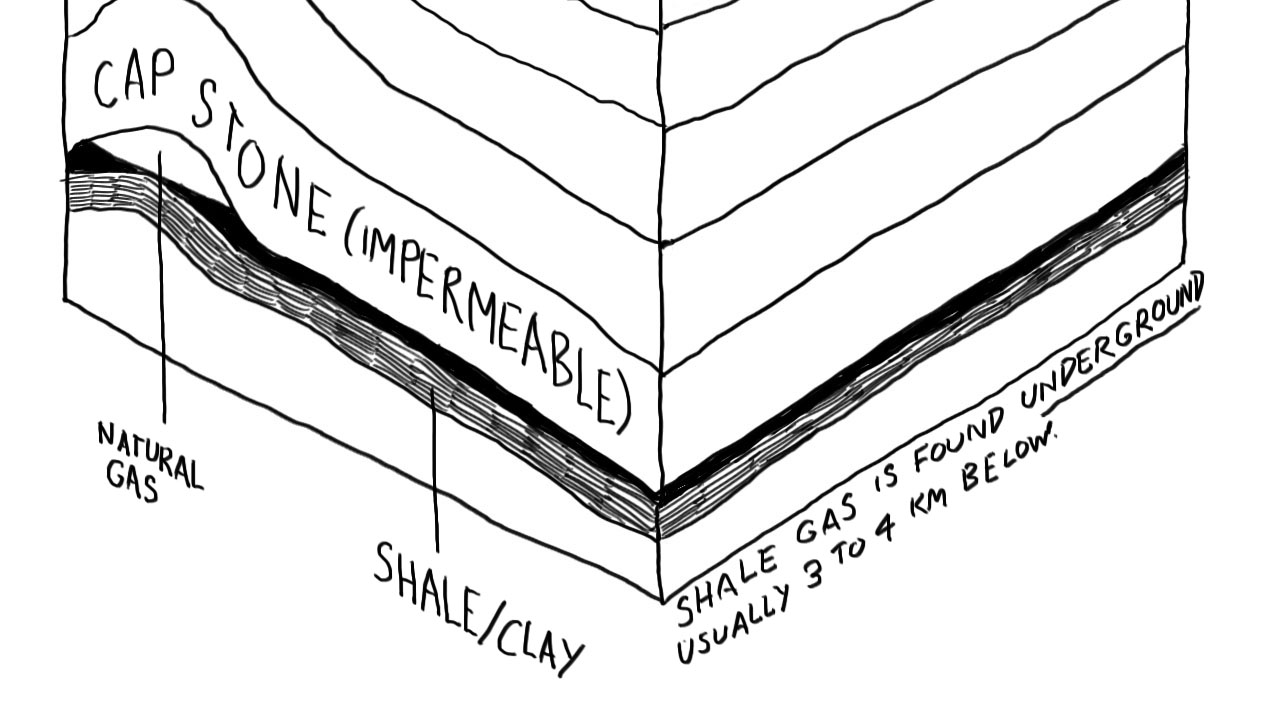 CAP STONE (IMPERMEABLE)
NATURAL
GAS
SHALE/CLAY
SHALE GAS IS FOUND UNDERGROUND
USUALLY 3 TO 4 KM BELOW.